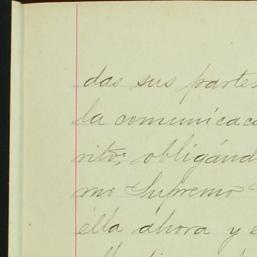 das sus partes
la comunicac
rito; obligánd
mo Supremo
ella ahora y e